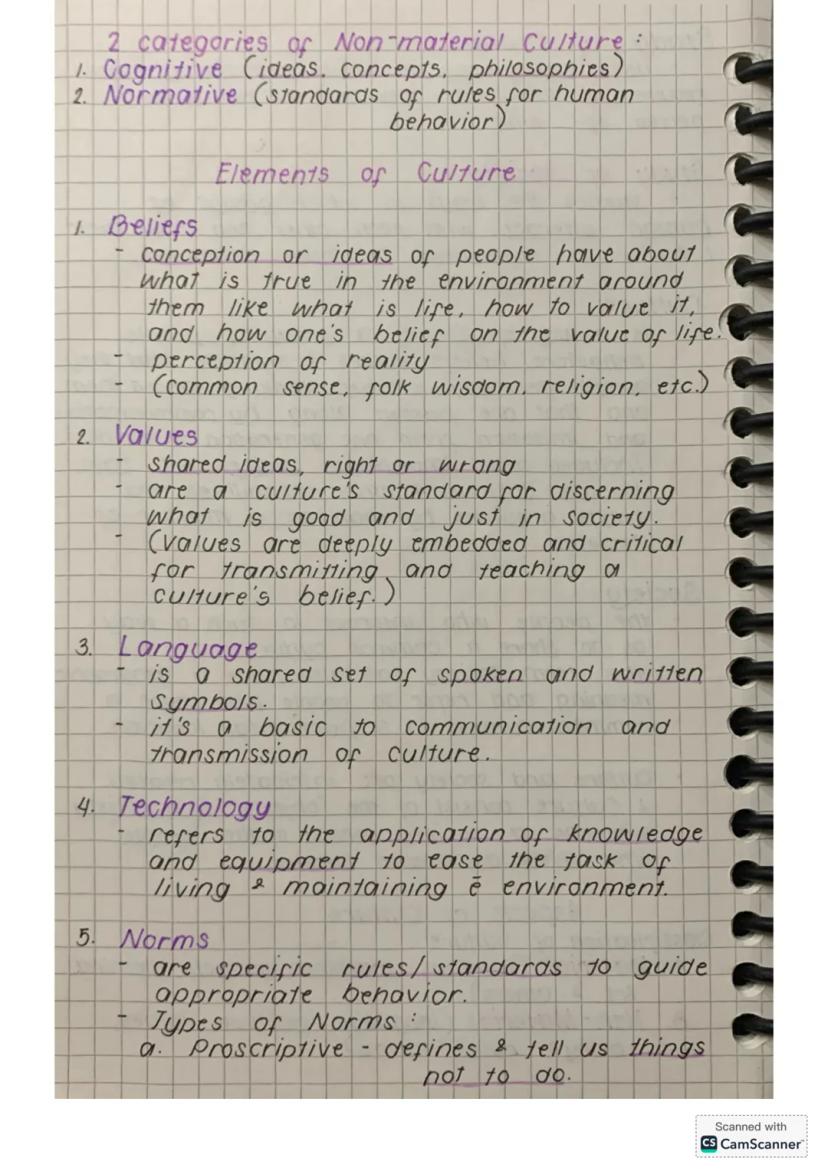 2 categories of Non-material Culture :
1. Cognitive (ideas, concepts, philosophies)
2. Normative (standards of rules for human
behavior)
Elements of Culture
1. Beliefs
- conception or ideas of people have about
what is true in the environment around
them like what is life, how to value it,
and how one's belief on the value of life.
- perception of reality
- (common sense, folk wisdom, religion, etc.)
2. Values
- shared ideas, right or wrong
- are a culture's standard for discerning
what is good and just in society.
- (values are deeply embedded and critical
for transmitting and teaching a
culture's belief.)
3. Language
- is a shared set of spoken and written
symbols.
- it's a basic to communication and
transmission of culture.
4. Technology
- refers to the application of knowledge
and equipment to ease the task of
living & maintaining ē environment.
5. Norms
- are specific rules/standards to guide
appropriate behavior.
- Types of Norms :
a. Proscriptive - defines & tell us things
not to do.
Scanned with
CS CamScanner